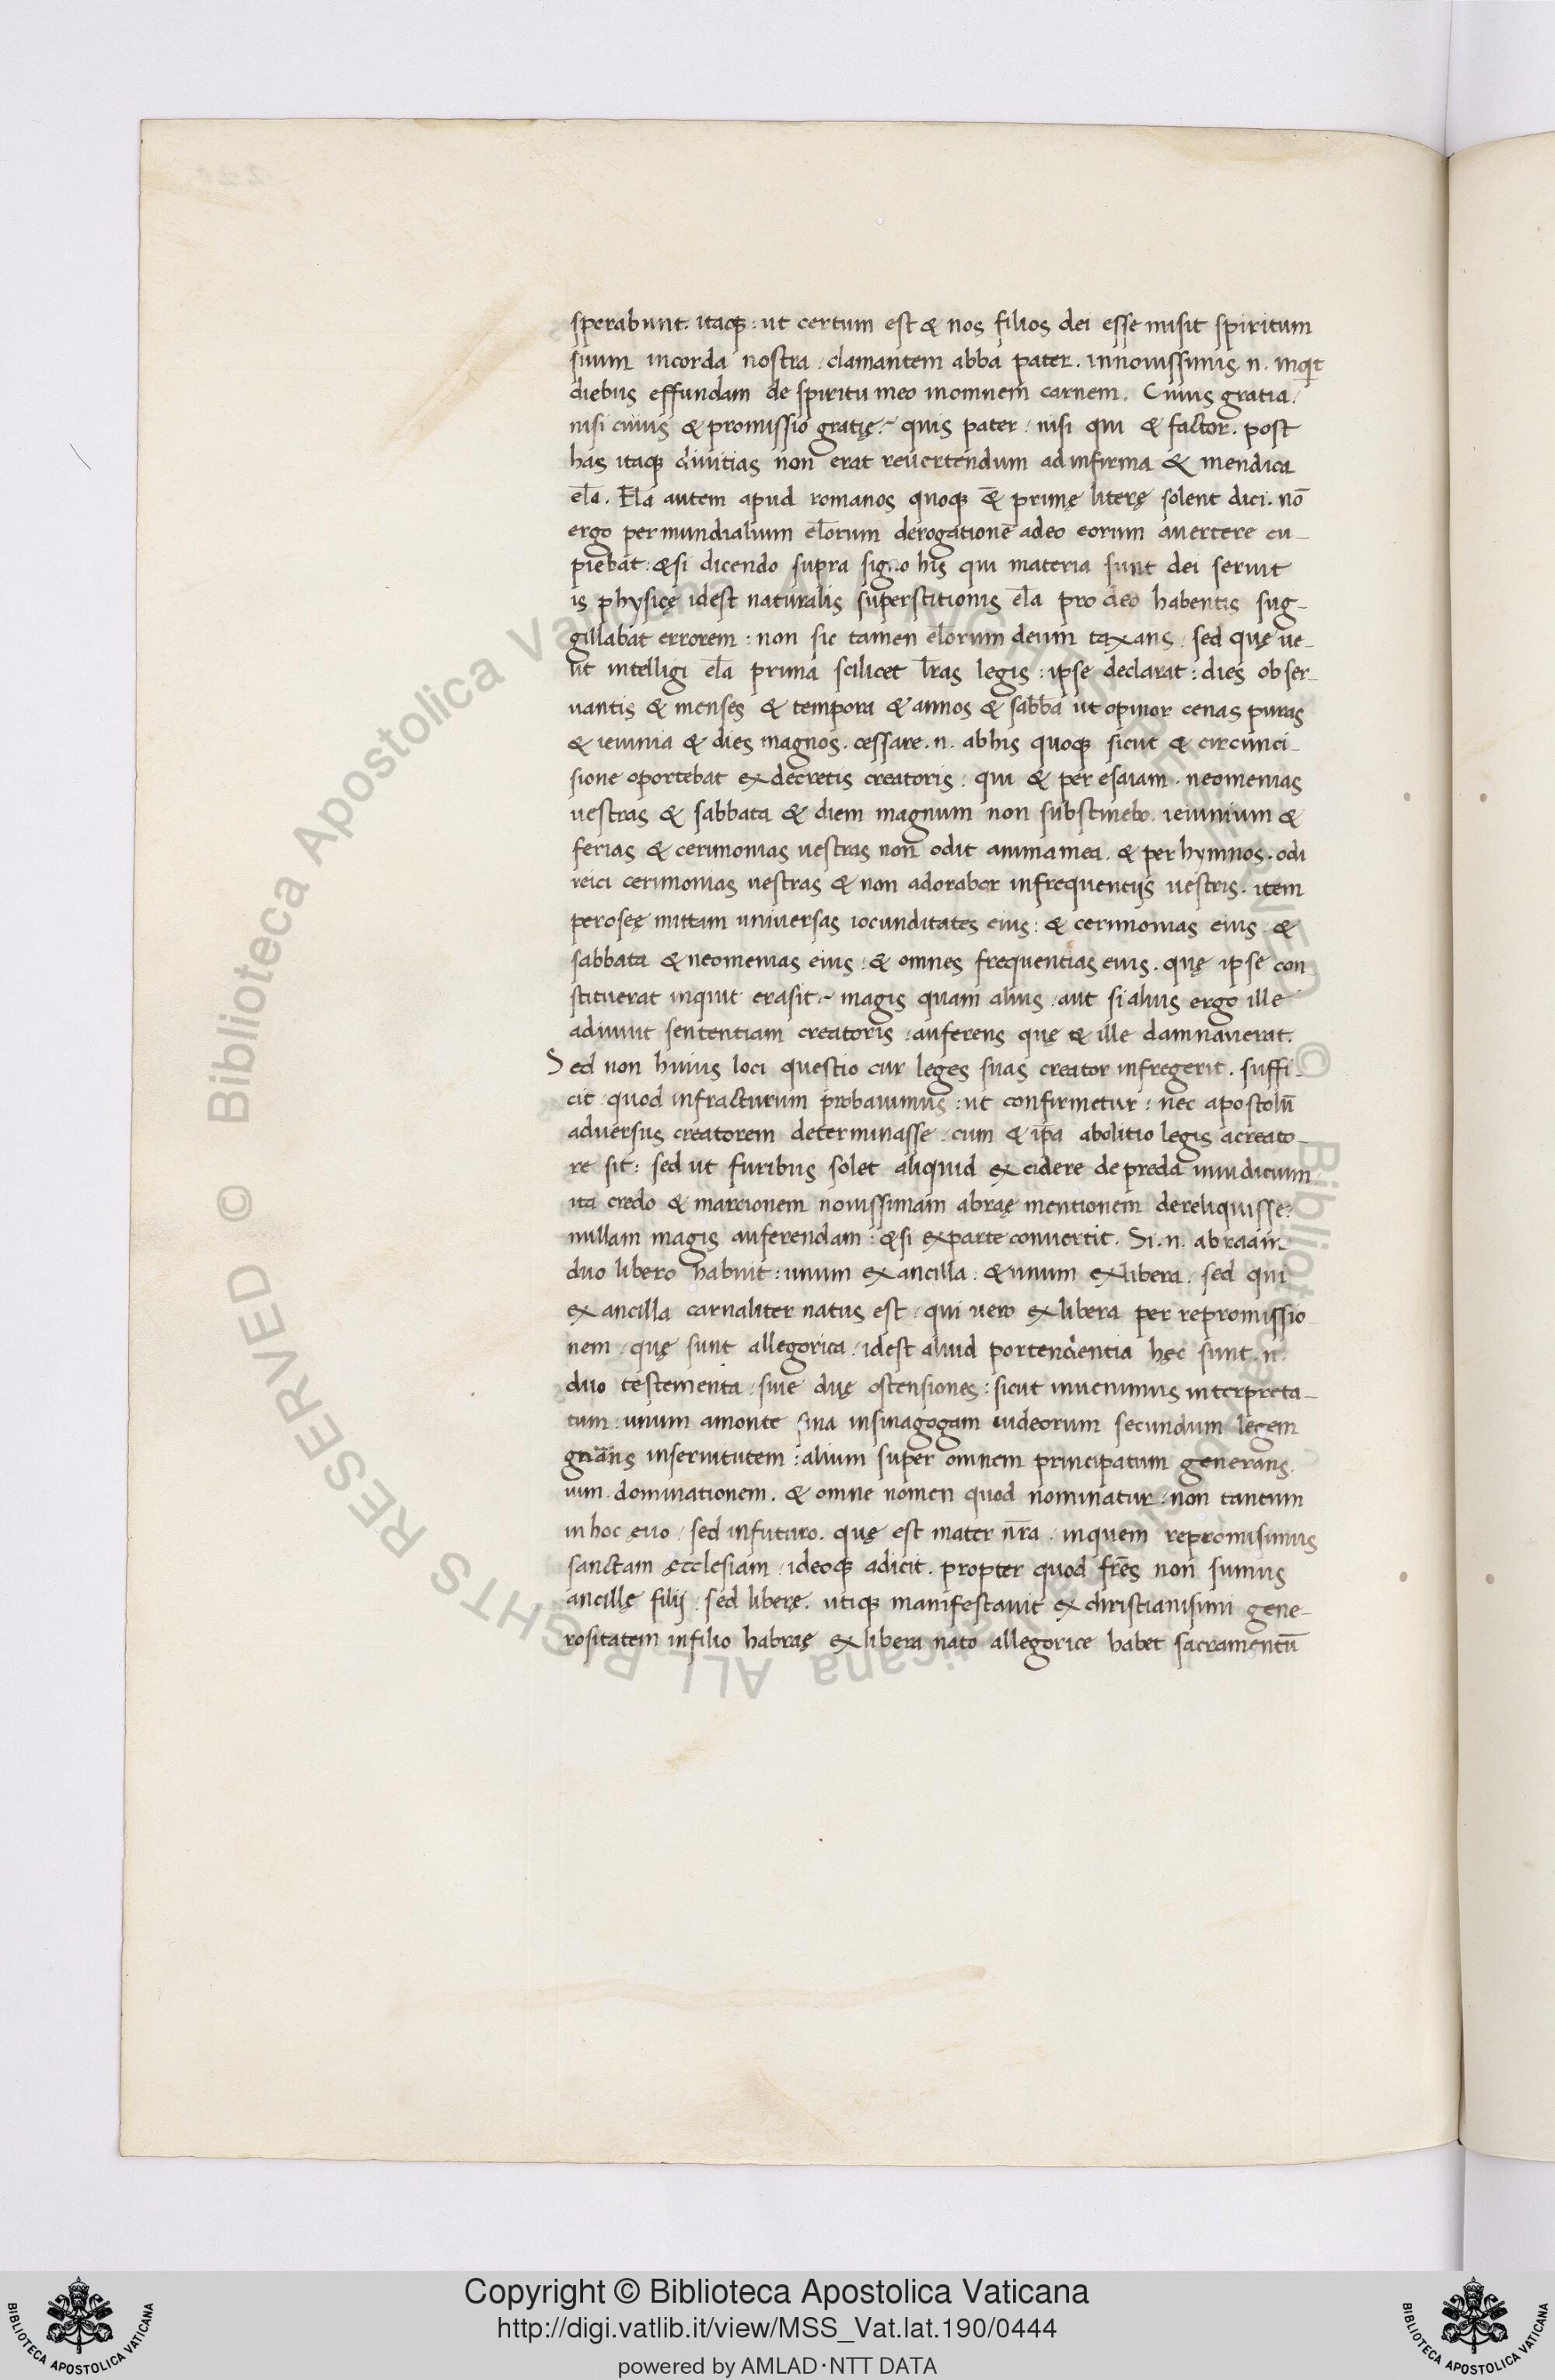 sperabunt. itaqꝫ : ut certum est & nos filios dei esse misit spiritum
suum incorda nostra . clamantem abba pater . innouissimis .n. inqͥt
diebus effundam de spiritu meo inomnem carnem . Cuius gratia .
nisi cuius & promissio gratię . quis pater . nisi qui & factor . post
has itaqꝫ diuitias non erat reuertendum adinfirma & mendica
el̄a . El̄a autem apud romanos quoqꝫ & primę literę solent dici . nō
ergo permundialium el̄orum derogationē adeo eorum auertere cu-
piebat : & si dicendo supra signo his qui materia sunt dei seruit
is physicę idest naturalis superstitionis el̄a pro deo habentis sug-
gillabat errorem : non sic tamen el̄orum deum taxans . sed quę ue-
lit intelligi el̄a prima scilicet l̄ras legis : ipse declarat : dies obser-
uantis & menses & tempora & annos & sabba ut opinor cenas puras
& ieiunia & dies magnos . cessare .n. abhis quoqꝫ sicut & circunci-
sione oportebat ex decretis creatoris . qui & per esaiam . neomenias
uestras & sabbata & diem magnum non substinebo . ieiunium &
ferias & cerimonias uestras non odit anima mea . & per hymnos . odi
reici cerimonias uestras & non adorabor infrequentijs uestris . item
peroseę mittam uniuersas iocunditates eius : & cerimonias eius . &
sabbata & neomenias eius : & omnes frequentias eius . quę ipse con
stituerat inquit erasit . magis quam alius . aut si alius ergo ille
adiuuit sententiam creatoris . auferens quę & ille damnauerat .
Sed non huius loci questio cur leges suas creator infregerit . suffi-
cit quod infracturum probauimus : ut confirmetur : nec apostolū
aduersus creatorem determinasse . cum & ip̄a abolitio legis acreato-
re sit : sed ut furibus solet aliquid excidere de preda inindicium
ita credo & marcionem nouissimam abraę mentionem dereliquisse .
nullam magis auferendam : & si exparte conuertit . Si .n. abraam
duo libero habuit : unum ex ancilla : & unum ex libera . sed qui
ex ancilla carnaliter natus est . qui uero ex libera per repromissio
nem . quę sunt allegorica . idest aliud portendentia hęc sunt .n.
duo testementa . siue duę ostensiones : sicut inuenimus interpreta-
tum : unum amonte sina insinagogam iudeorum secundum legem
gn̄ans inseruitutem : alium super omnem principatum generans .
uim . dominationem . & omne nomen quod nominatur . non tantum
in hoc ęuo . sed infuturo . quę est mater nr̄a . inquem repromisimus
sanctam ęcclesiam . ideoqꝫ adicit . propter quod fr̄es non sumus
ancillę filij . sed liberę . utiqꝫ manifestauit & christianismi gene-
rositatem infilio habraę ex libera nato allegorice habet sacramentū
Copyright © Biblioteca Apostolica Vaticana
http://digi.vatlib.it/view/MSS_Vat.lat.190/0444
powered by AMLAD·NTT DATA